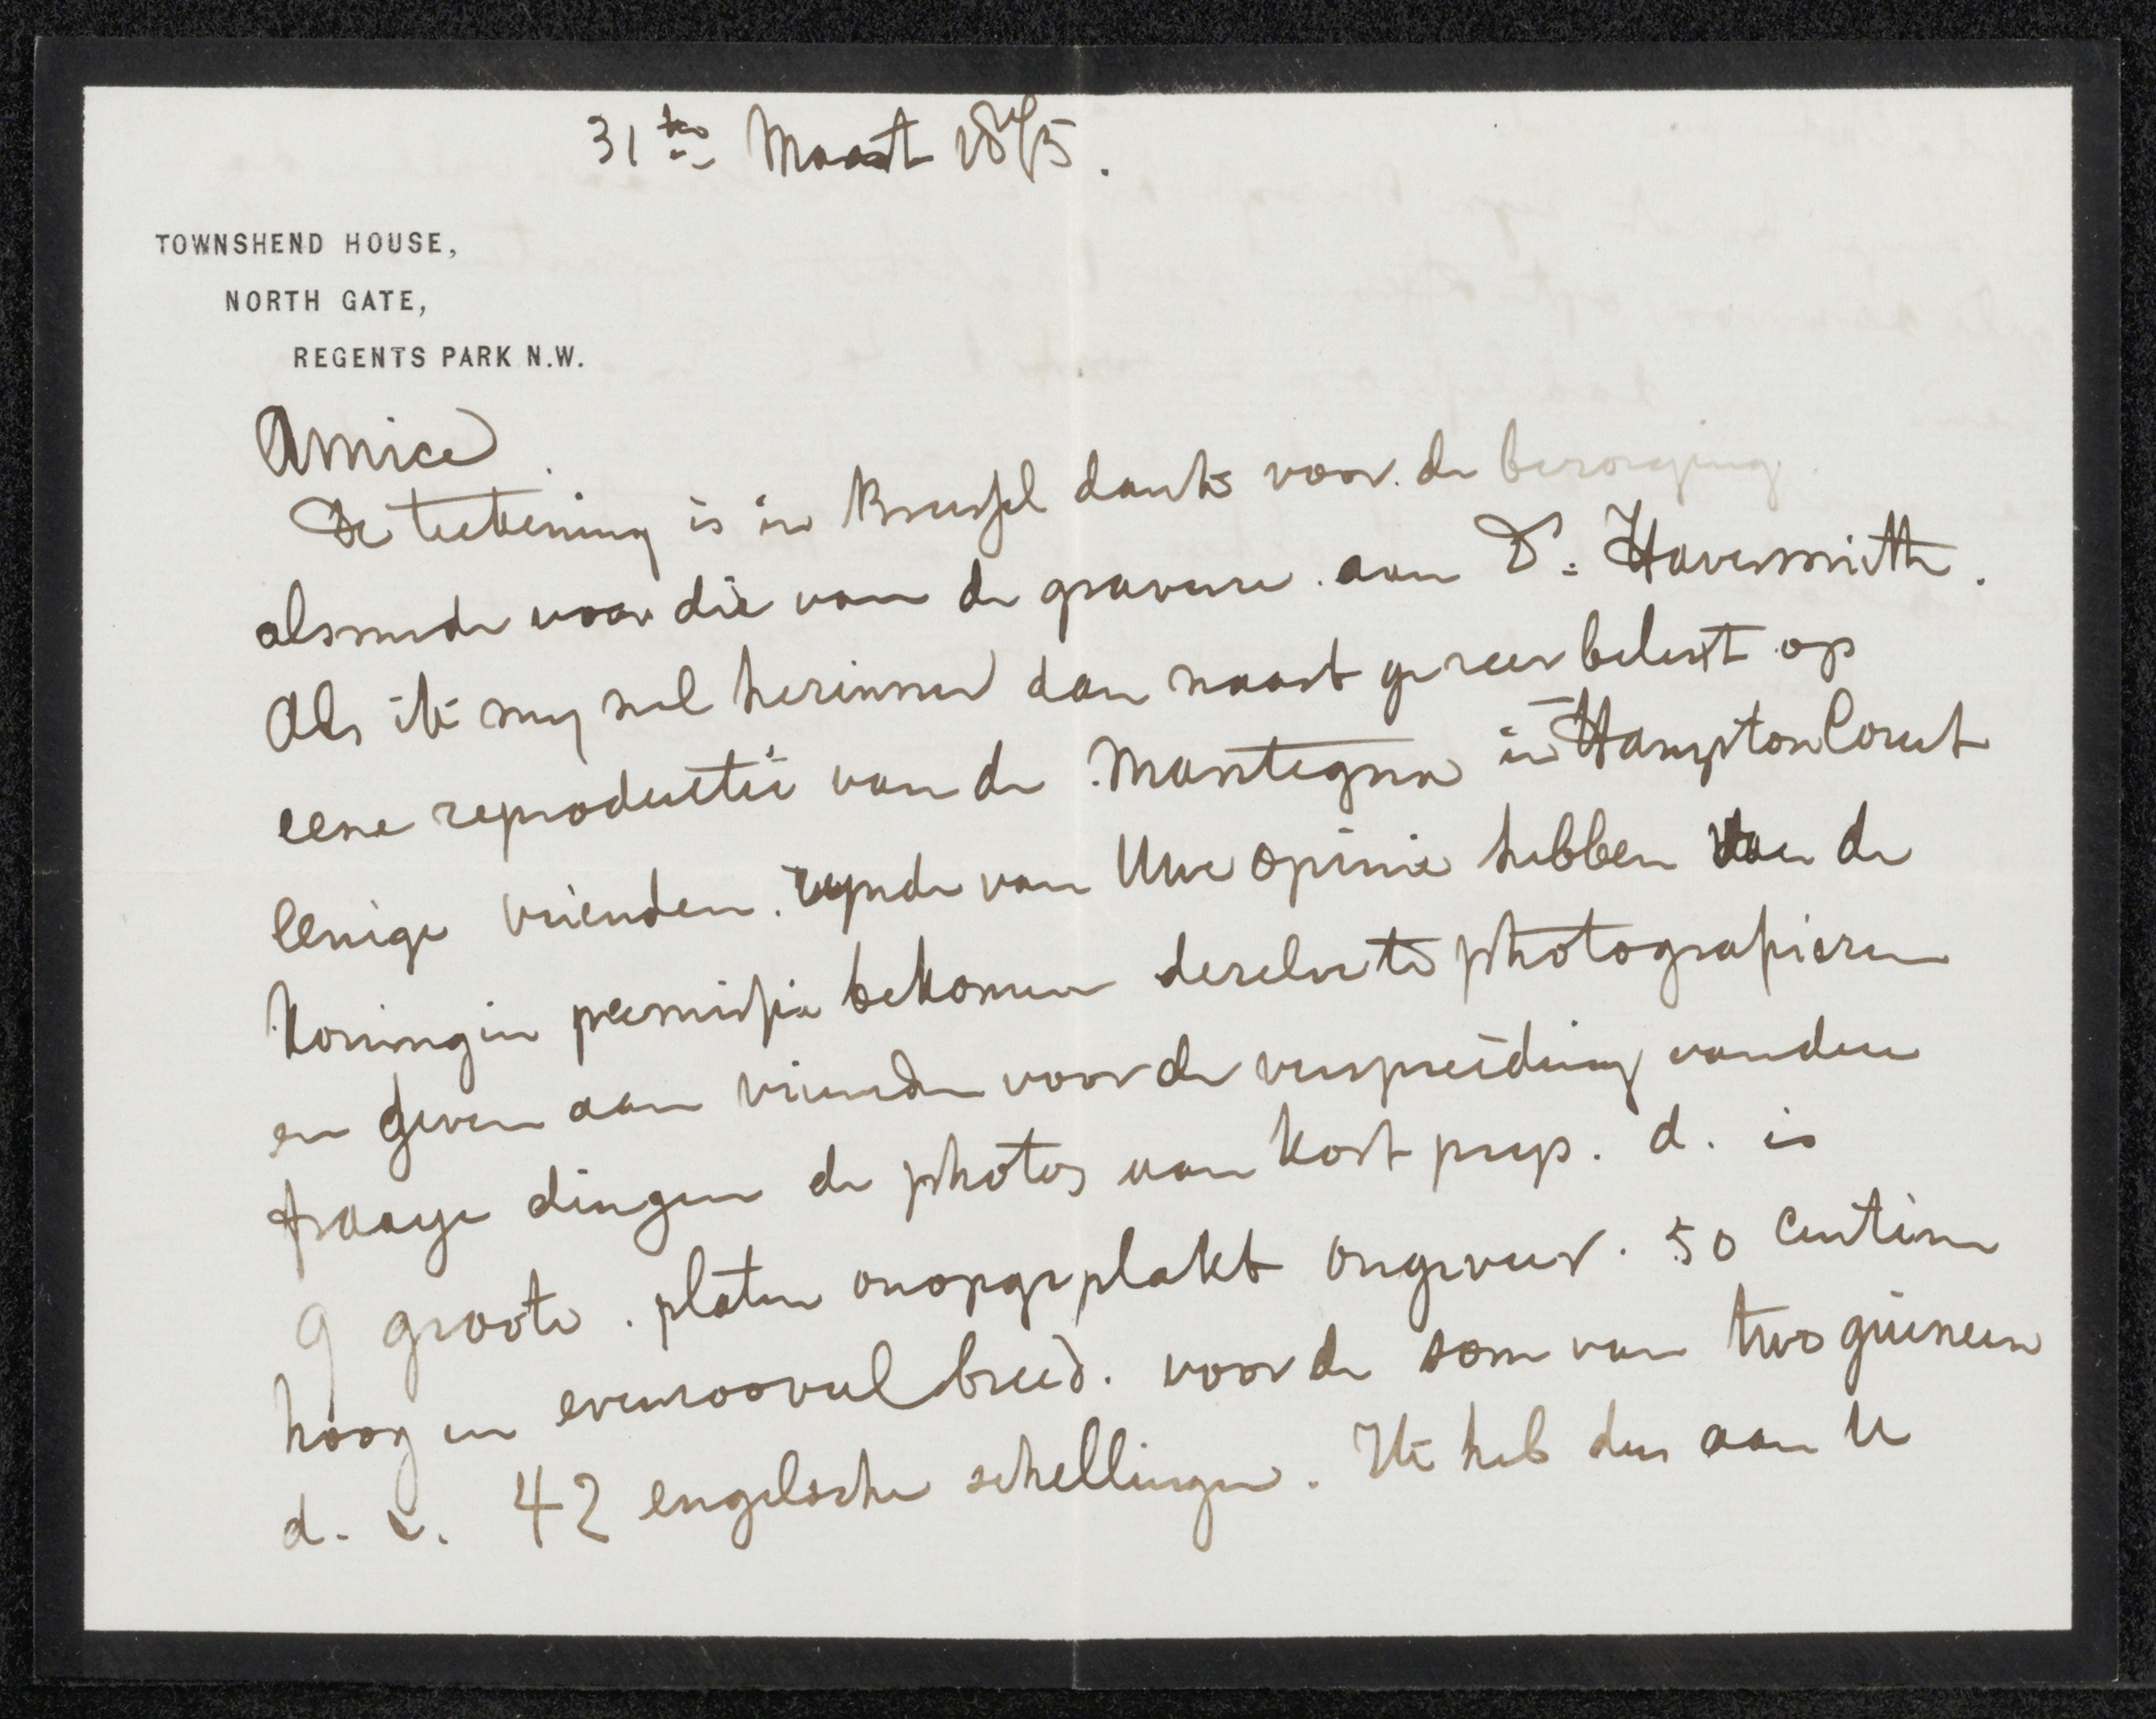 31ten Maart 1875.
TOWNSHEND HOUSE,
NORTH GATE,
REGENTS PARK N.W.
Amice
De teekening is in Brussel dank voor de bezorging
alsmede voor die van de gravure aan Dr. Haversmith.
Als ik my wel herinner dan waart ge zeer belust op
eene reproductie van de Mantegna in Hampton Court
Eenige vrienden zynde van Uwe opinie hebben van de
Koningin permissie bekomen dezelve te photografieren
en geven aan vrienden voor de verspreiding van deze
fraaye dingen de photos aan kost prys. d. is
9 groote platen onopgeplakt ongeveer 50 centim
hoog en evenzooveel breed. voor de som van two guineas
d. i. 42 engelsche schellingen. Ik heb dus aan U